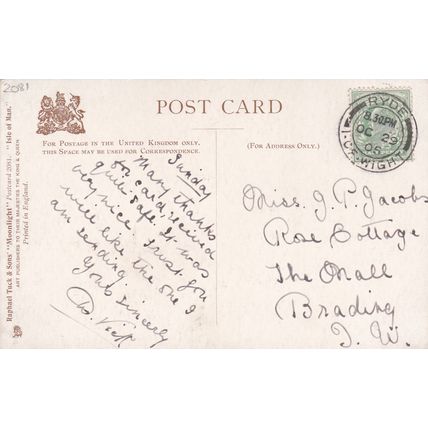 2081
POST CARD
FOR POSTAGE IN THE UNITED KINGDOM ONLY,
THIS SPACE MAY BE USED FOR CORRESPONDENCE.
(FOR ADDRESS ONLY.)
Raphael Tuck & Sons' "Moonlight" Postcard 2081. "Isle of Man."
ART PUBLISHERS TO THEIR MAJESTIES THE KING & QUEEN
Printed in England.
RYDE
8.30PM
OC 29
06
I.O. WIGHT
Sunday
Many thanks
for card, received
quite safe. It was
very nice, trust you
will like the one I
am sending.
Yours Sincerely
Miss. J. P. Jacobs
Rose Cottage
The Mall
Brading
I. W.